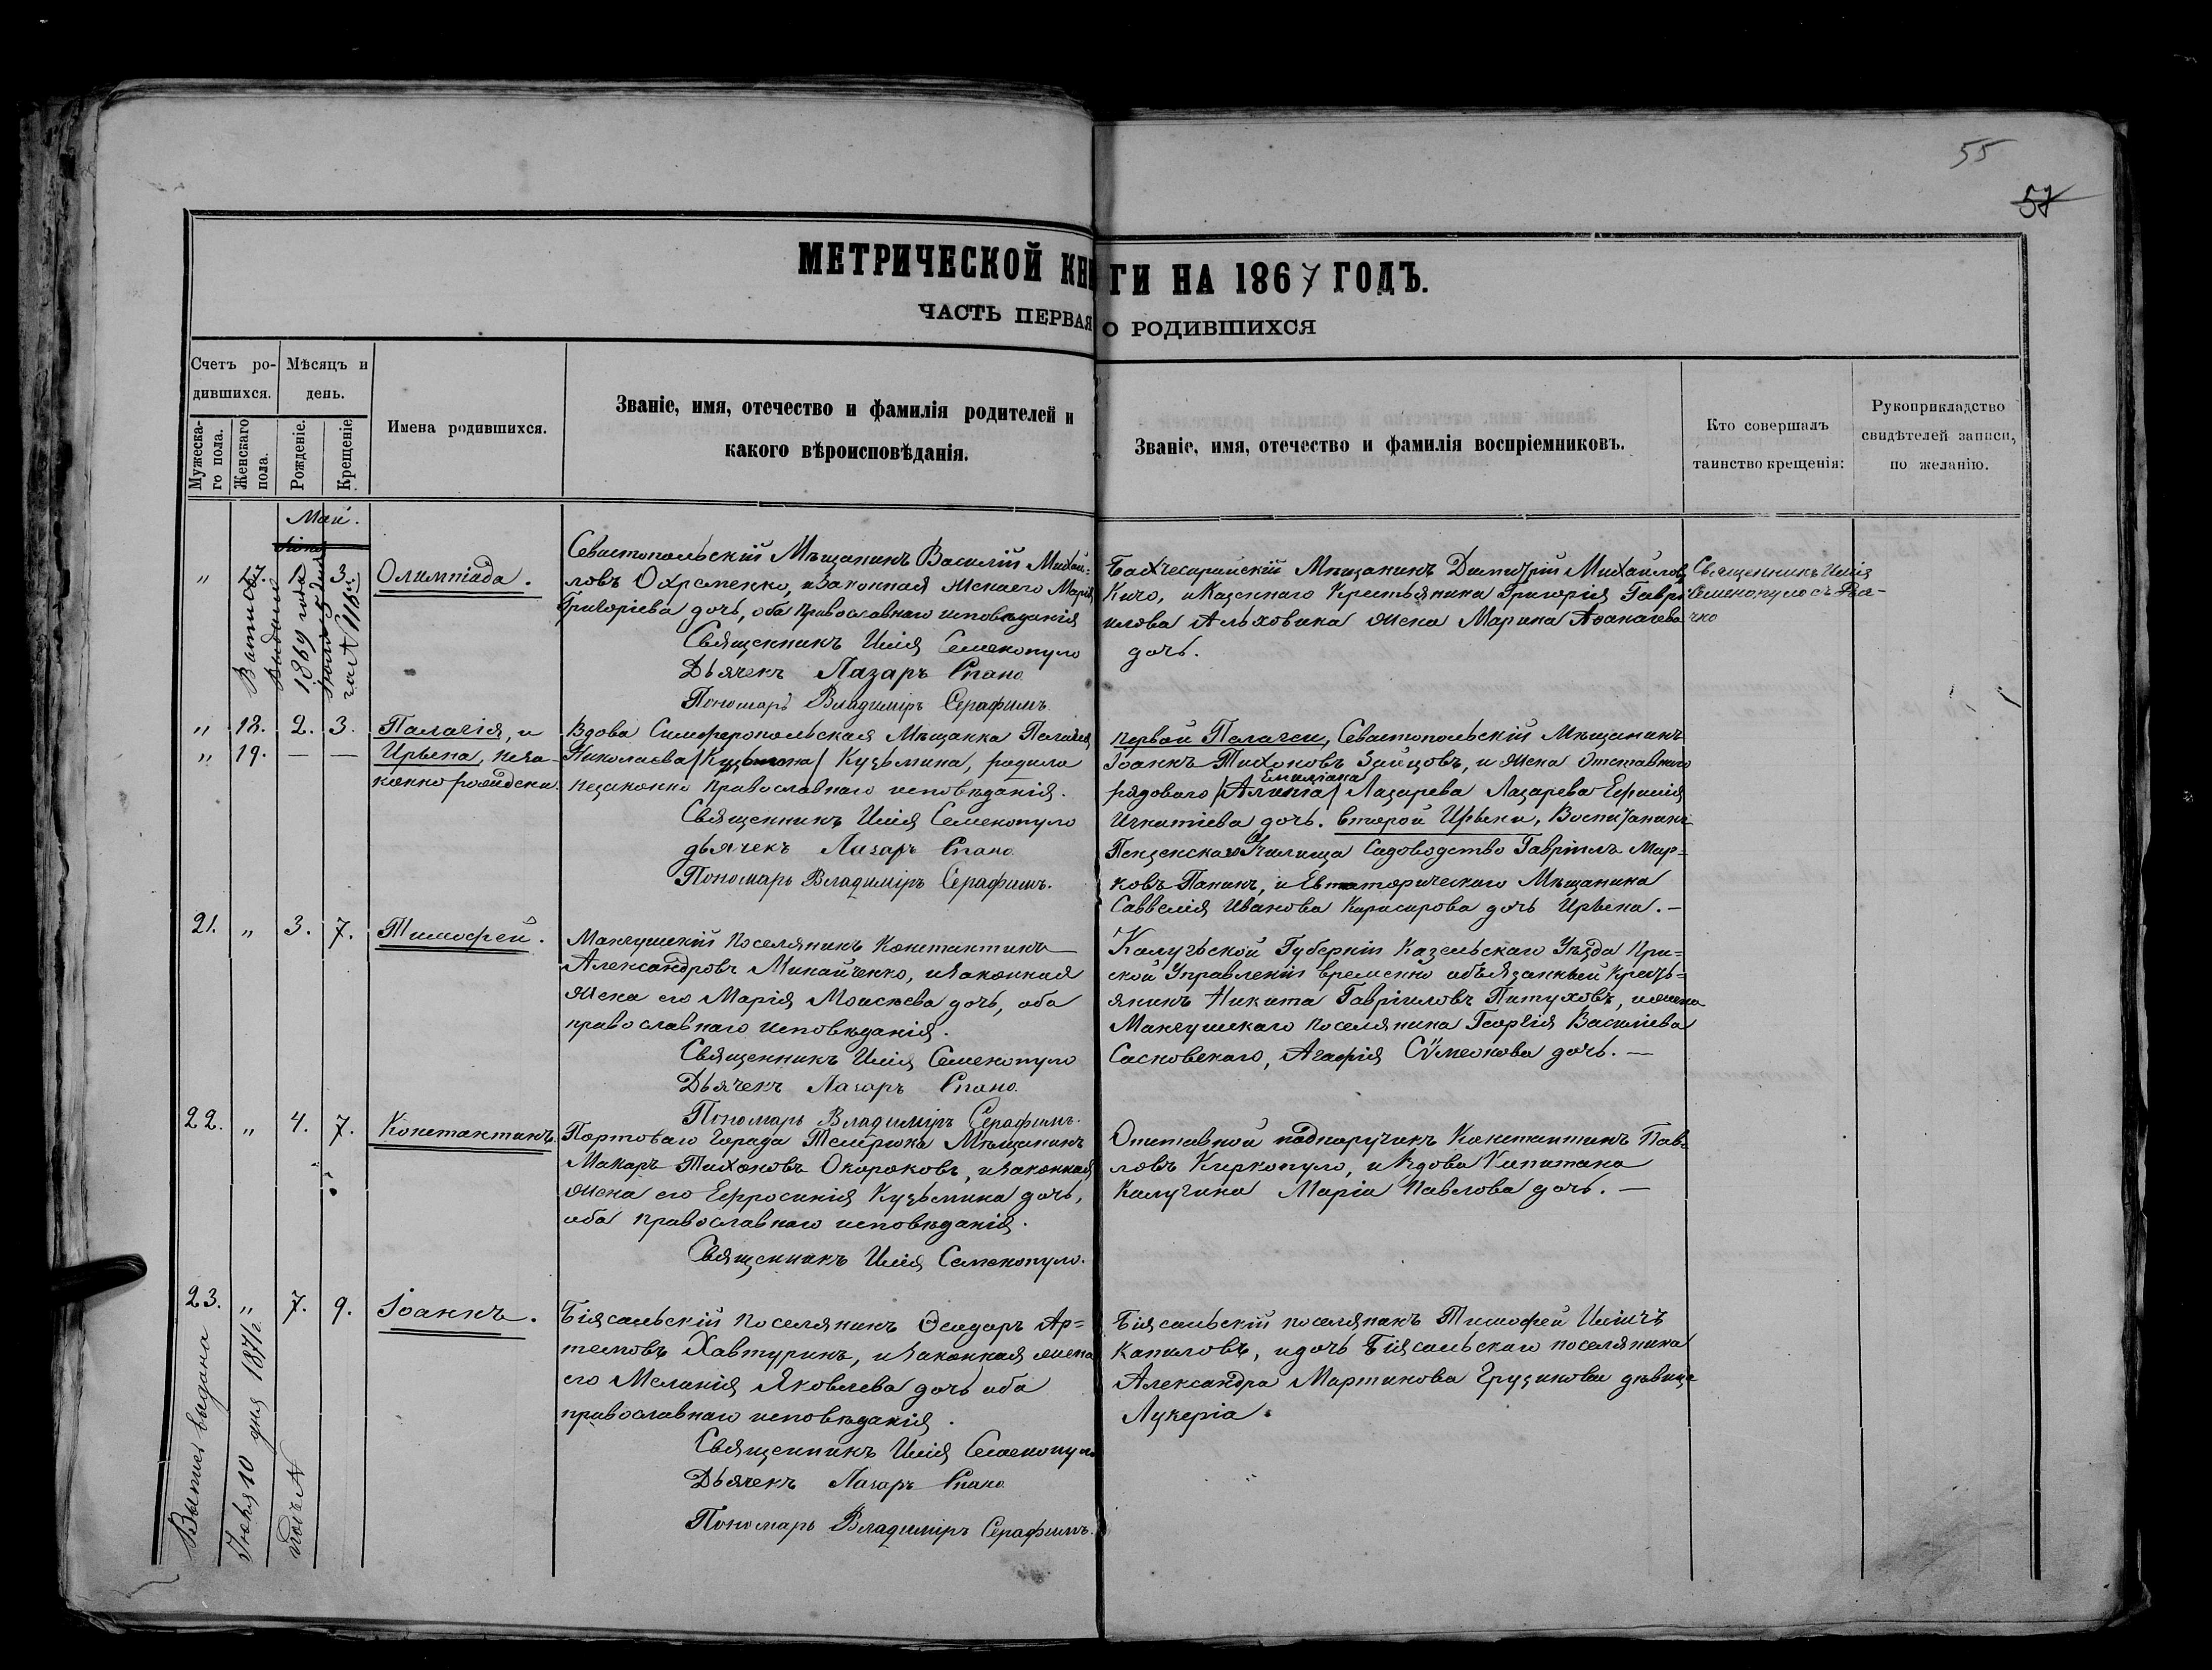 55
57
МЕТРИЧЕСКОЙ КНИГИ НА 1867 ГОДЪ.
ЧАСТЬ ПЕРВАЯ О РОДИВШИХСЯ
Счетъ ро-
дившихся.
Мужеска-
го пола.
Женскаго
пола.
Мѣсяцъ и
день.
Рожденіе.
Крещеніе
Имена родившихся.
Званіе, имя, отечество и фамилія родителей и
какого вѣроисповѣданія.
Званіе, имя, отечество и фамилія воспріемниковъ.
Кто совершалъ
таинство крещенія:
Рукоприкладство
свидѣтелей записи,
по желанію.
Май.
" 17. 1. 3. Олимпіада.
Севастопольскій Мѣщанинъ Василій Михай=
ловъ Охременко, и законная жена его Марія
Григоріева дочь, оба православнаго исповѣданія
Священникъ Илія Семенопуло
Дьячекъ Лазарь Спано
Пономарь Владиміръ Серафимъ.
Бахчесарайскій Мѣщанинъ Димитрій Михайловъ
Кичо, и Казеннаго Крестьянина Григорія Гаври-
илова Альховика жена Марина Афанасіева
дочь.
Священникъ Илія
Семенопуло съ
1869 года
№ 116
" 18. 2. 3. Палагія, и
" 19. — — Ирьена, неза-
конно рождены.
Вдова Симферопольская Мѣщанка Пелагія
Николаева Кузьмина, родила
незаконно православнаго исповѣданія.
Священникъ Илія Семенопуло
дьячекъ Лазарь Спано
Пономарь Владиміръ Серафимъ.
первой Палагеи, Севастопольскій Мѣщанинъ
Іоаннъ Тихоновъ Зайцовъ, и жена Отставнаго
Емиліана
рядоваго Лазарева Лазарева Ефимія
Игнатіева дочь. второй Ирьены, Воспитанникъ
Пензенскаго Училища Садоводство Гавріилъ Мар=
ковъ Панинъ, и Евпаторическаго Мѣщанина
Саввелія Иванова дочь Ирьена. —
21. " 3. 7. Тимофей.
Мангушскій поселянинъ Константинъ
Александровъ Минайченко, и законная
жена его Марія Моисѣева дочь, оба
православнаго исповѣданія.
Священникъ Илія Семенопуло
Дьячекъ Лазарь Спано
Пономарь Владиміръ Серафимъ.
Калужской Губерніи Казельскаго Уѣзда При=
ской Управленіи временно обязанный кресть=
янинъ Никита Гавріиловъ Питуховъ, и жена
Мангушскаго поселянина Георгія Василіева
Сасновскаго, Агафія Сѵмеонова дочь. —
22. " 4. 7. Константинъ.
Портоваго города Темрюка Мѣщанинъ
Макаръ Тихоновъ Окороковъ, и законная
жена его Ефросинія Кузьмина дочь,
оба православнаго исповѣданія.
Священникъ Илія Семенопуло.
Отставной подпоручикъ Константинъ Пав=
ловъ Киркопуло, и вдова Капитана
Калугина Марія Павлова дочь. —
23. " 7. 9. Іоаннъ.
Біясальскій поселянинъ Ѳеодоръ Ар=
темовъ Хавтуринъ, и законная жена
его Меланія Яковлева дочь оба
православнаго исповѣданія.
Священникъ Илія Семенопуло
Дьячекъ Лазарь Спано
Пономарь Владиміръ Серафимъ.
Біясальскій поселянинъ Тимофей Иличъ
Капиловъ, и дочь Біясальскаго поселянина
Александра Мартинова Грузинова дѣвица
Лукерія.
Выпись выдана
Іюня 10 дня 1871 г.
подъ №